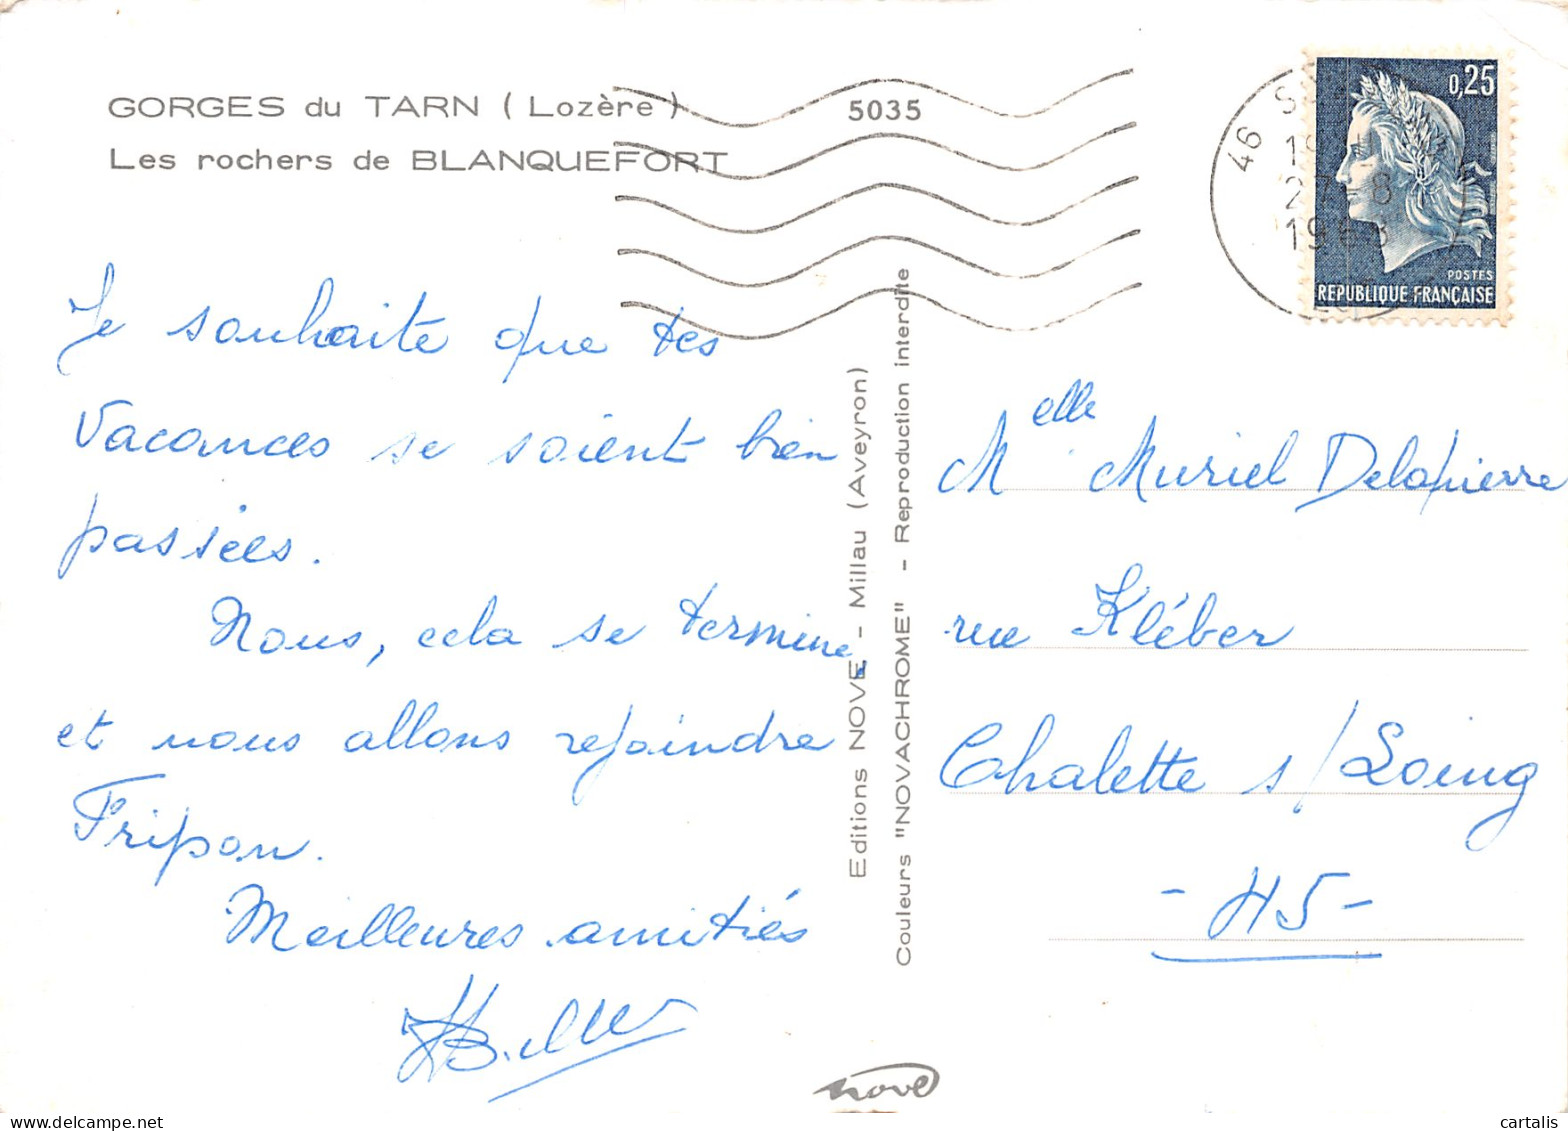 GORGES du TARN ( Lozère )
5035
Les rochers de BLANQUEFORT
Je souhaite que tes
Vacances se soient bien
passées.
Nous, cela se termine,
et nous allons rejoindre
Fripon.
Meilleures amitiés
Editions NOVE - Millau (Aveyron)
Couleurs "NOVACHROME" - Reproduction interdite
nove
46
0,25
POSTES
REPUBLIQUE FRANÇAISE
Melle Muriel Delapierre
rue Kléber
Chalette s/Loing
- 45 -
delcampe.net
cartalis